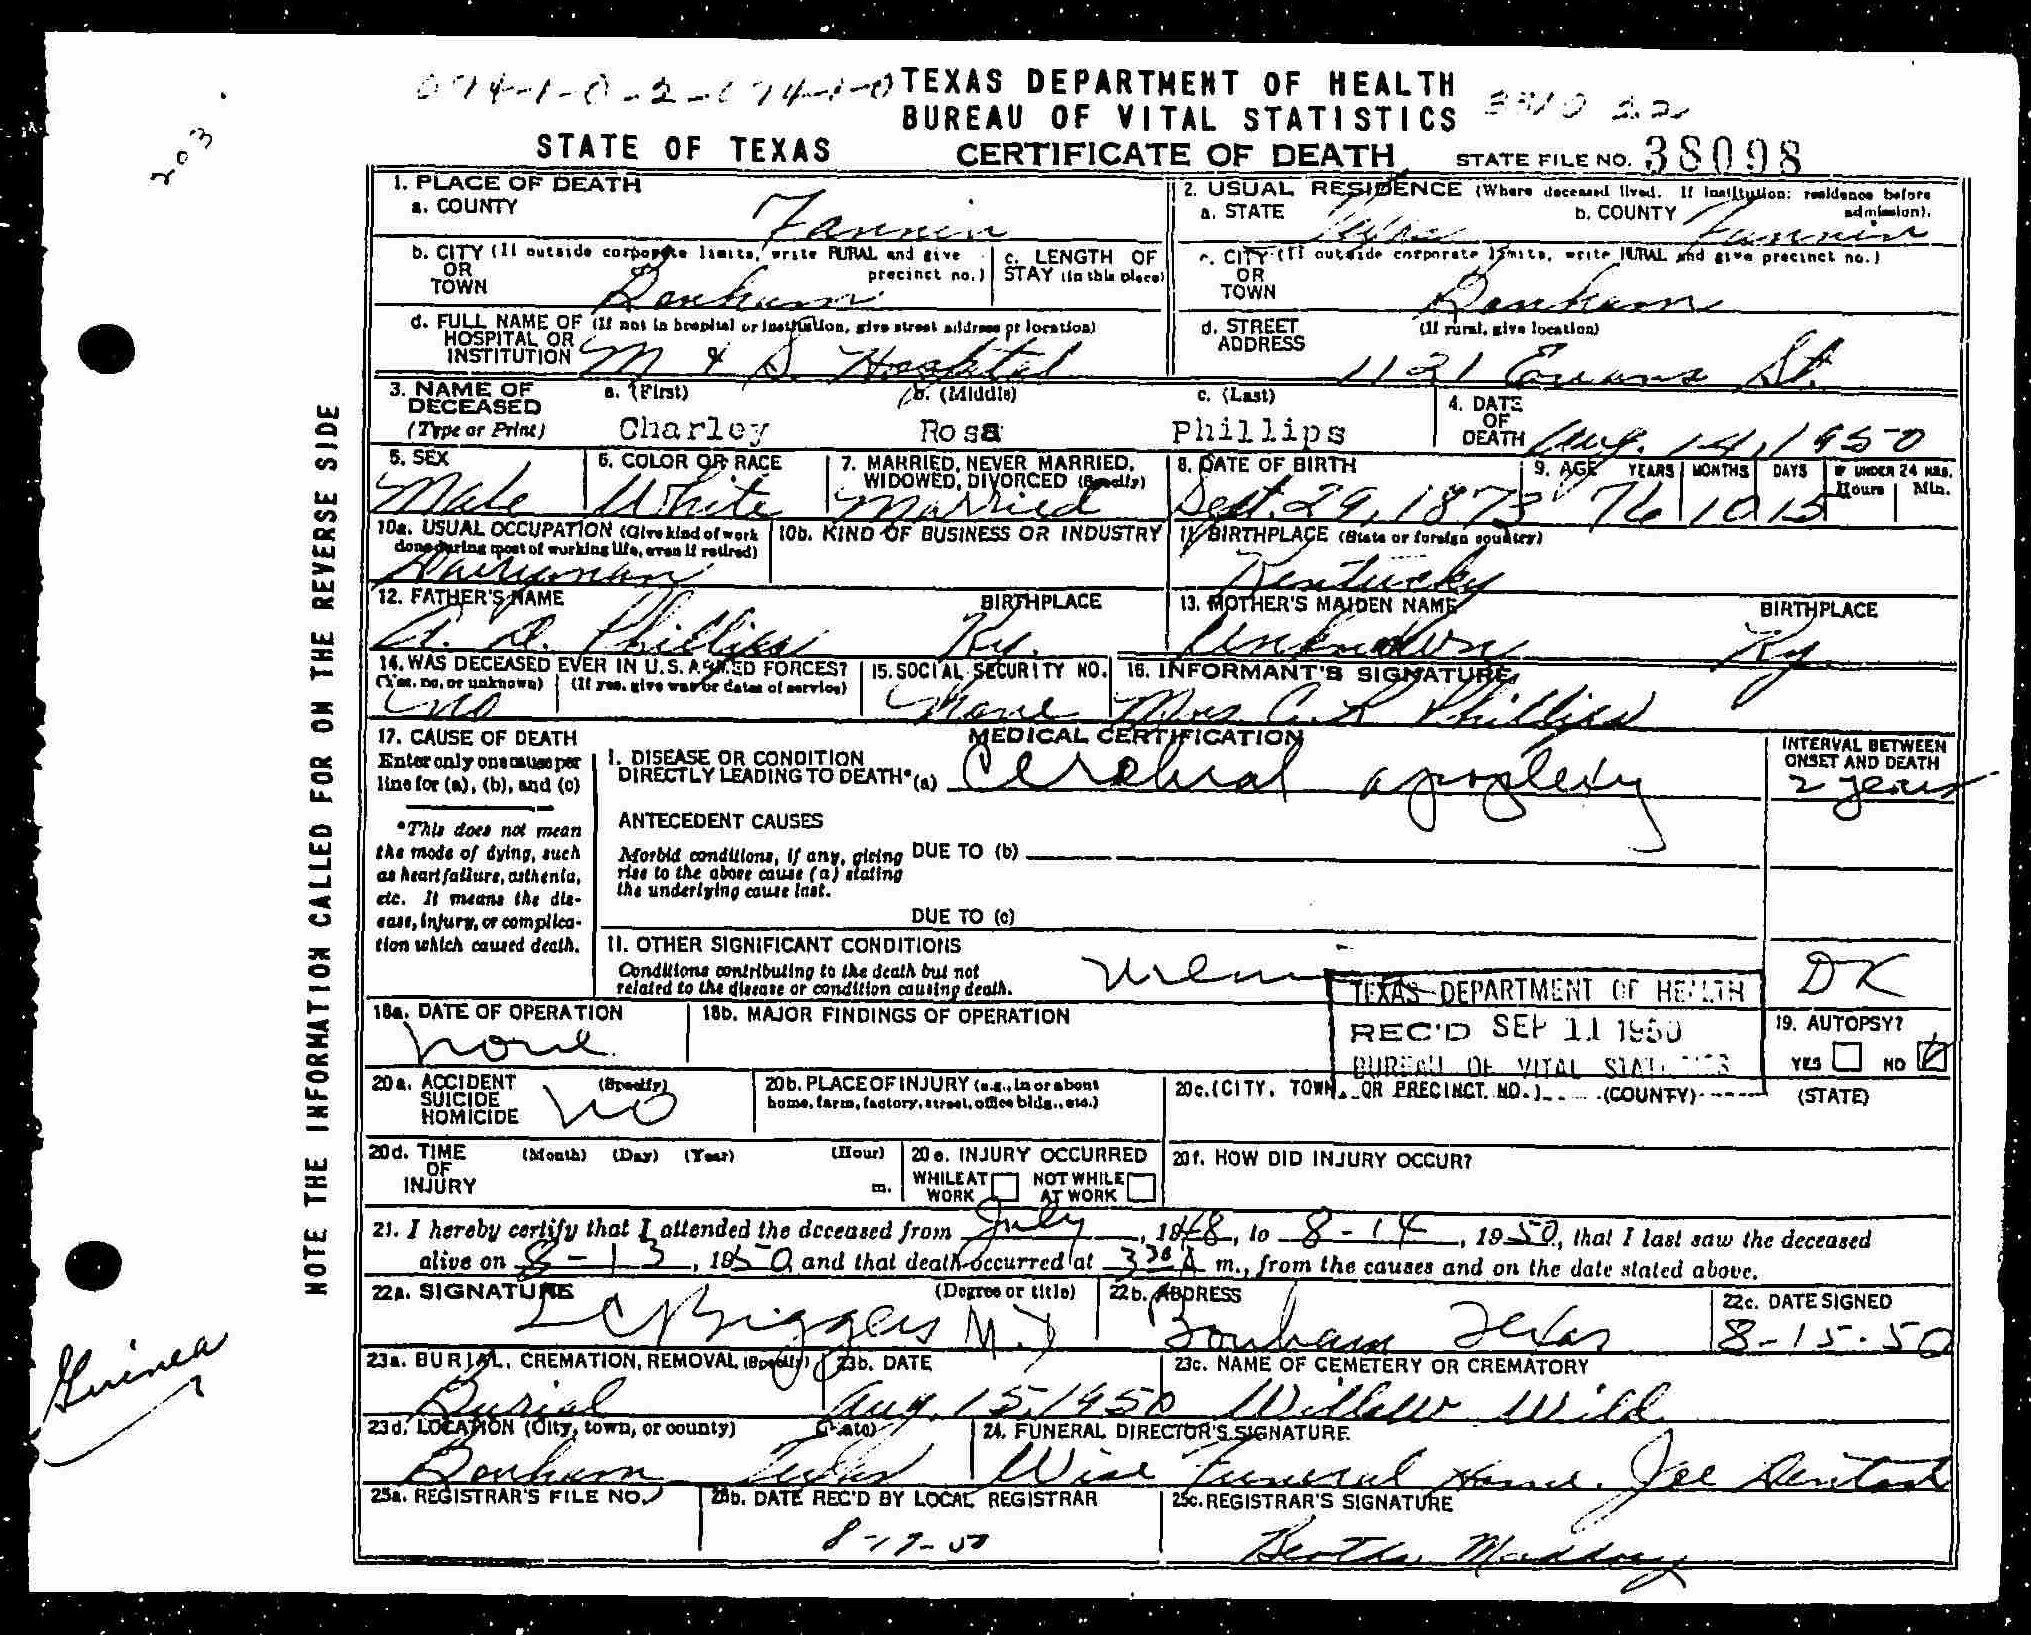 TEXAS DEPARTMENT OF HEALTH
BUREAU OF VITAL STATISTICS
STATE OF TEXAS CERTIFICATE OF DEATH STATE FILE NO. 38098
203
NOTE THE INFORMATION CALLED FOR ON THE REVERSE SIDE
1. PLACE OF DEATH
a. COUNTY Fannin
2. USUAL RESIDENCE (Where deceased lived. If institution: residence before admission).
a. STATE Texas b. COUNTY Fannin
b. CITY (If outside corporate limits, write RURAL and give precinct no.) OR TOWN Bonham
c. LENGTH OF STAY (in this place)
c. CITY (If outside corporate limits, write RURAL and give precinct no.) OR TOWN Bonham
d. FULL NAME OF (If not in hospital or institution, give street address or location) HOSPITAL OR INSTITUTION M & S. Hospital
d. STREET ADDRESS (If rural, give location) 1121 Evans St.
3. NAME OF DECEASED (Type or Print) a. (First) Charley b. (Middle) Ross c. (Last) Phillips
4. DATE OF DEATH Aug. 14, 1950
5. SEX Male
6. COLOR OR RACE White
7. MARRIED, NEVER MARRIED, WIDOWED, DIVORCED (Specify) Married
8. DATE OF BIRTH Sept. 29, 1873
9. AGE YEARS 76 MONTHS 10 DAYS 15 IF UNDER 24 HRS. Hours Min.
10a. USUAL OCCUPATION (Give kind of work done during most of working life, even if retired) Dairyman
10b. KIND OF BUSINESS OR INDUSTRY
11. BIRTHPLACE (State or foreign country) Kentucky
12. FATHER'S NAME A. D. Phillips BIRTHPLACE Ky.
13. MOTHER'S MAIDEN NAME Unknown BIRTHPLACE Ky.
14. WAS DECEASED EVER IN U.S. ARMED FORCES? (Yes, no, or unknown) No (If yes, give war or dates of service)
15. SOCIAL SECURITY NO. None
16. INFORMANT'S SIGNATURE Mrs. C. R. Phillips
17. CAUSE OF DEATH
Enter only one cause per line for (a), (b), and (c)
*This does not mean the mode of dying, such as heart failure, asthenia, etc. It means the disease, injury, or complication which caused death.
MEDICAL CERTIFICATION
I. DISEASE OR CONDITION DIRECTLY LEADING TO DEATH* (a) Cerebral apoplexy
INTERVAL BETWEEN ONSET AND DEATH 2 years
ANTECEDENT CAUSES
Morbid conditions, if any, giving rise to the above cause (a) stating the underlying cause last.
DUE TO (b)
DUE TO (c)
II. OTHER SIGNIFICANT CONDITIONS
Conditions contributing to the death but not related to the disease or condition causing death.
DK
TEXAS DEPARTMENT OF HEALTH
REC'D SEP 11 1950
BUREAU OF VITAL STATISTICS
18a. DATE OF OPERATION none
18b. MAJOR FINDINGS OF OPERATION
19. AUTOPSY? YES NO
20a. ACCIDENT SUICIDE HOMICIDE (Specify) no
20b. PLACE OF INJURY (e.g., in or about home, farm, factory, street, office bldg., etc.)
20c. (CITY, TOWN, OR PRECINCT NO.) (COUNTY) (STATE)
20d. TIME OF INJURY (Month) (Day) (Year) (Hour) m.
20e. INJURY OCCURRED WHILE AT WORK NOT WHILE AT WORK
20f. HOW DID INJURY OCCUR?
21. I hereby certify that I attended the deceased from July, 1948, to 8-14, 1950, that I last saw the deceased
alive on 8-13, 1950 and that death occurred at 3 30 A m., from the causes and on the date stated above.
22a. SIGNATURE (Degree or title) L C Biggers M.D
22b. ADDRESS Bonham Texas
22c. DATE SIGNED 8-15-50
23a. BURIAL, CREMATION, REMOVAL (Specify) Burial
23b. DATE Aug. 15, 1950
23c. NAME OF CEMETERY OR CREMATORY Willow Wild
23d. LOCATION (City, town, or county) (State) Bonham Texas
24. FUNERAL DIRECTOR'S SIGNATURE Wise Funeral Home. Joe
25a. REGISTRAR'S FILE NO.
25b. DATE REC'D BY LOCAL REGISTRAR
25c. REGISTRAR'S SIGNATURE Bertha